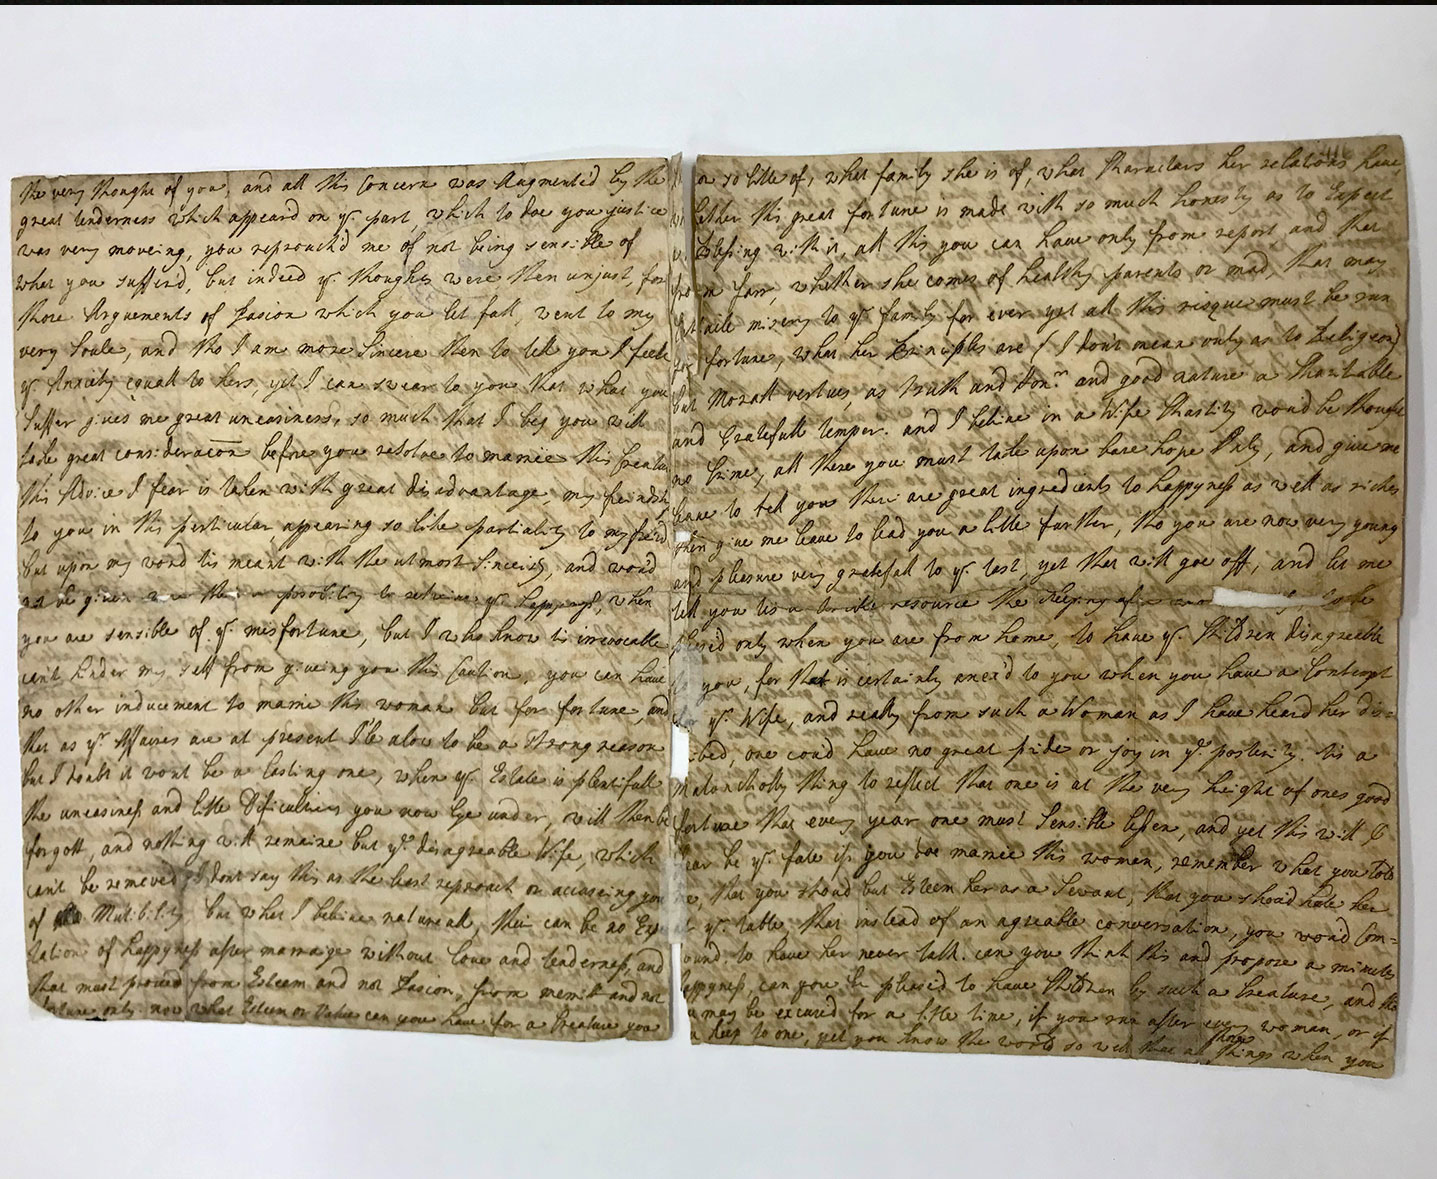 the very thought of you, and all this Concern was Augmented by the
great tenderness which appeard on yr. part, which to doe you justice
was very moveing, you reproach'd me of not being sensible of
what you suffer'd, but indeed yr. thoughts were then unjust, for
those Arguements of Pasion which you let fall, went to my
very Soule, and tho I am more Sincere then to tell you I feele
yr. Anxiety equall to hers, yet I can swear to you that what you
suffer gives me great uneasiness, so much that I beg you will
take great consideracon before you resolve to marrie this Creature
this Advice I fear is taken with great disadvantage, my freindsh
to you in this particular, appearing so like partiality to my freind
but upon my word tis meant with the utmost Sincerity, and wou'd
not be given posibility to retreive yr. happyness, when
you are sensible of yr. misfortune, but I who know tis irrevocable
can't hinder my self from giveing you this Caution, you can have
no other inducement to marrie this woman but for fortune, and
that as yr. Affaires are at present I'le alow to be a strong reason
but I doubt it wont be a lasting one, when yr. Estate is plentifull
the uneasiness and little Dificulties you now lye under, will then be
forgott, and nothing will remaine but ye. disagreable Wife, which
can't be removed, I dont say this as the least reproach or accuseing you
of Mutibility, but what I beleive natureall, their can be no Expe
tation of happyness after marraige without love and tenderness, and
that must proceed from Esteem and not Pasion, from merrit and not
fortune only. now what Esteem or Value can you have for a Creature you
so little of, what family she is of, what Characters her relations have
this great fortune is made with so much honesty as to Expect
blessing with it, all this you can have only from report, and that
whether she comes of healthy parents or mad, that may
misery to yr. family for ever yet all this risque must be run
fortune, what her Principles are (I don't mean only as to Religeon)
but Morall vertues, as truth and Honr. and good nature a Charitable
and Gratefull temper. and I beleive in a Wife Chastity wou'd be thought
no Crime, all these you must take upon bare hope Only, and give me
leave to tell you these are great ingredients to happyness as well as riches
then give me leave to lead you a little further, tho you are now very young
and pleasure very gratefull to yr. tast, yet that will goe off, and let me
tell you tis a resource the keeping to be
pleased only when you are from home, to have yr. Children disagreeable
you, for that is certainly anex'd to you when you have a Contempt
for yr. Wife, and really from such a Woman as I have heard her dis=
bed, one cou'd have no great pride or joy in yr. posterity. tis a
Malancholly thing to reflect that one is at the very height of ones good
fortune that every year one must Sensible lesen, and yet this will I
fear be yr. fate if you doe marrie this woman, remember what you told
me, that you shoud but Esteem her as a Servant, that you shoud hate her
at yr. table, that instead of an agreable conversation, you wou'd Com=
ound to have her never talk. can you think this and propose a minutes
happyness, can you be pleased to have Children by such a Creature, and tho
you may be excused for a little time, if you run after every woman, or if
keep to one, yet you know the world so well that all these things when you